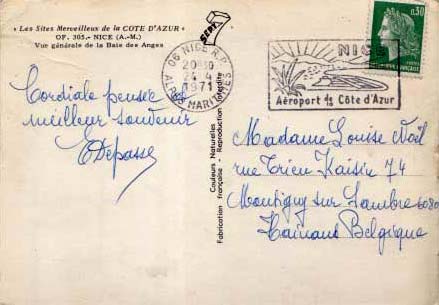 « Les Sites Merveilleux de la COTE D'AZUR »
OF. 305. - NICE (A.-M.)
Vue générale de la Baie des Anges
Cordiale pensée et
meilleur souvenir
EDepasse
GEPT
06 NICE R.P.
20H30
24-4
1971
ALPES MARITIMES
NICE
Aéroport de la Côte d'Azur
0,30
Couleurs Naturelles
Fabrication française - Reproduction interdite
Madame Louise Noël
rue Trieu Kaisin 74
Montigny sur Sambre 6080
Hainaut Belgique